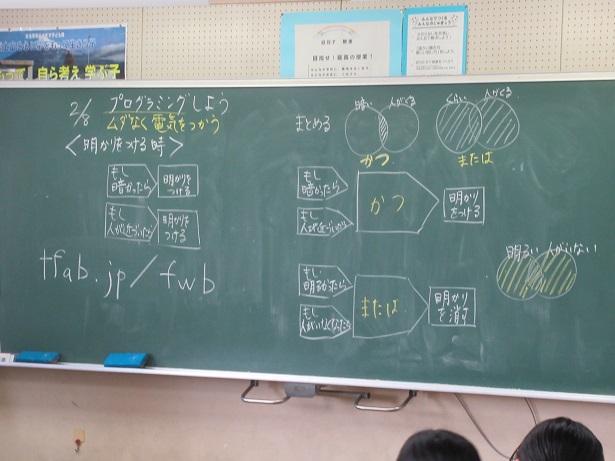 自ら考え 学ぶ子
目指せ!最高の授業!
2/8 プログラミングしよう
ムダなく電気をつかう
<明かりをつける時>
もし
暗かったら
明かりを
つける
もし
人が近づいたら
明かりを
つける
tfab.jp/fwb
まとめる
暗い
人がくる
かつ
くらい
人がくる
または
もし
暗かったら
もし
人が近づいたら
かつ
明かり
をつける
もし
明るかったら
もし
人がいなくなったら
または
明かり
を消す
明るい
人がいない